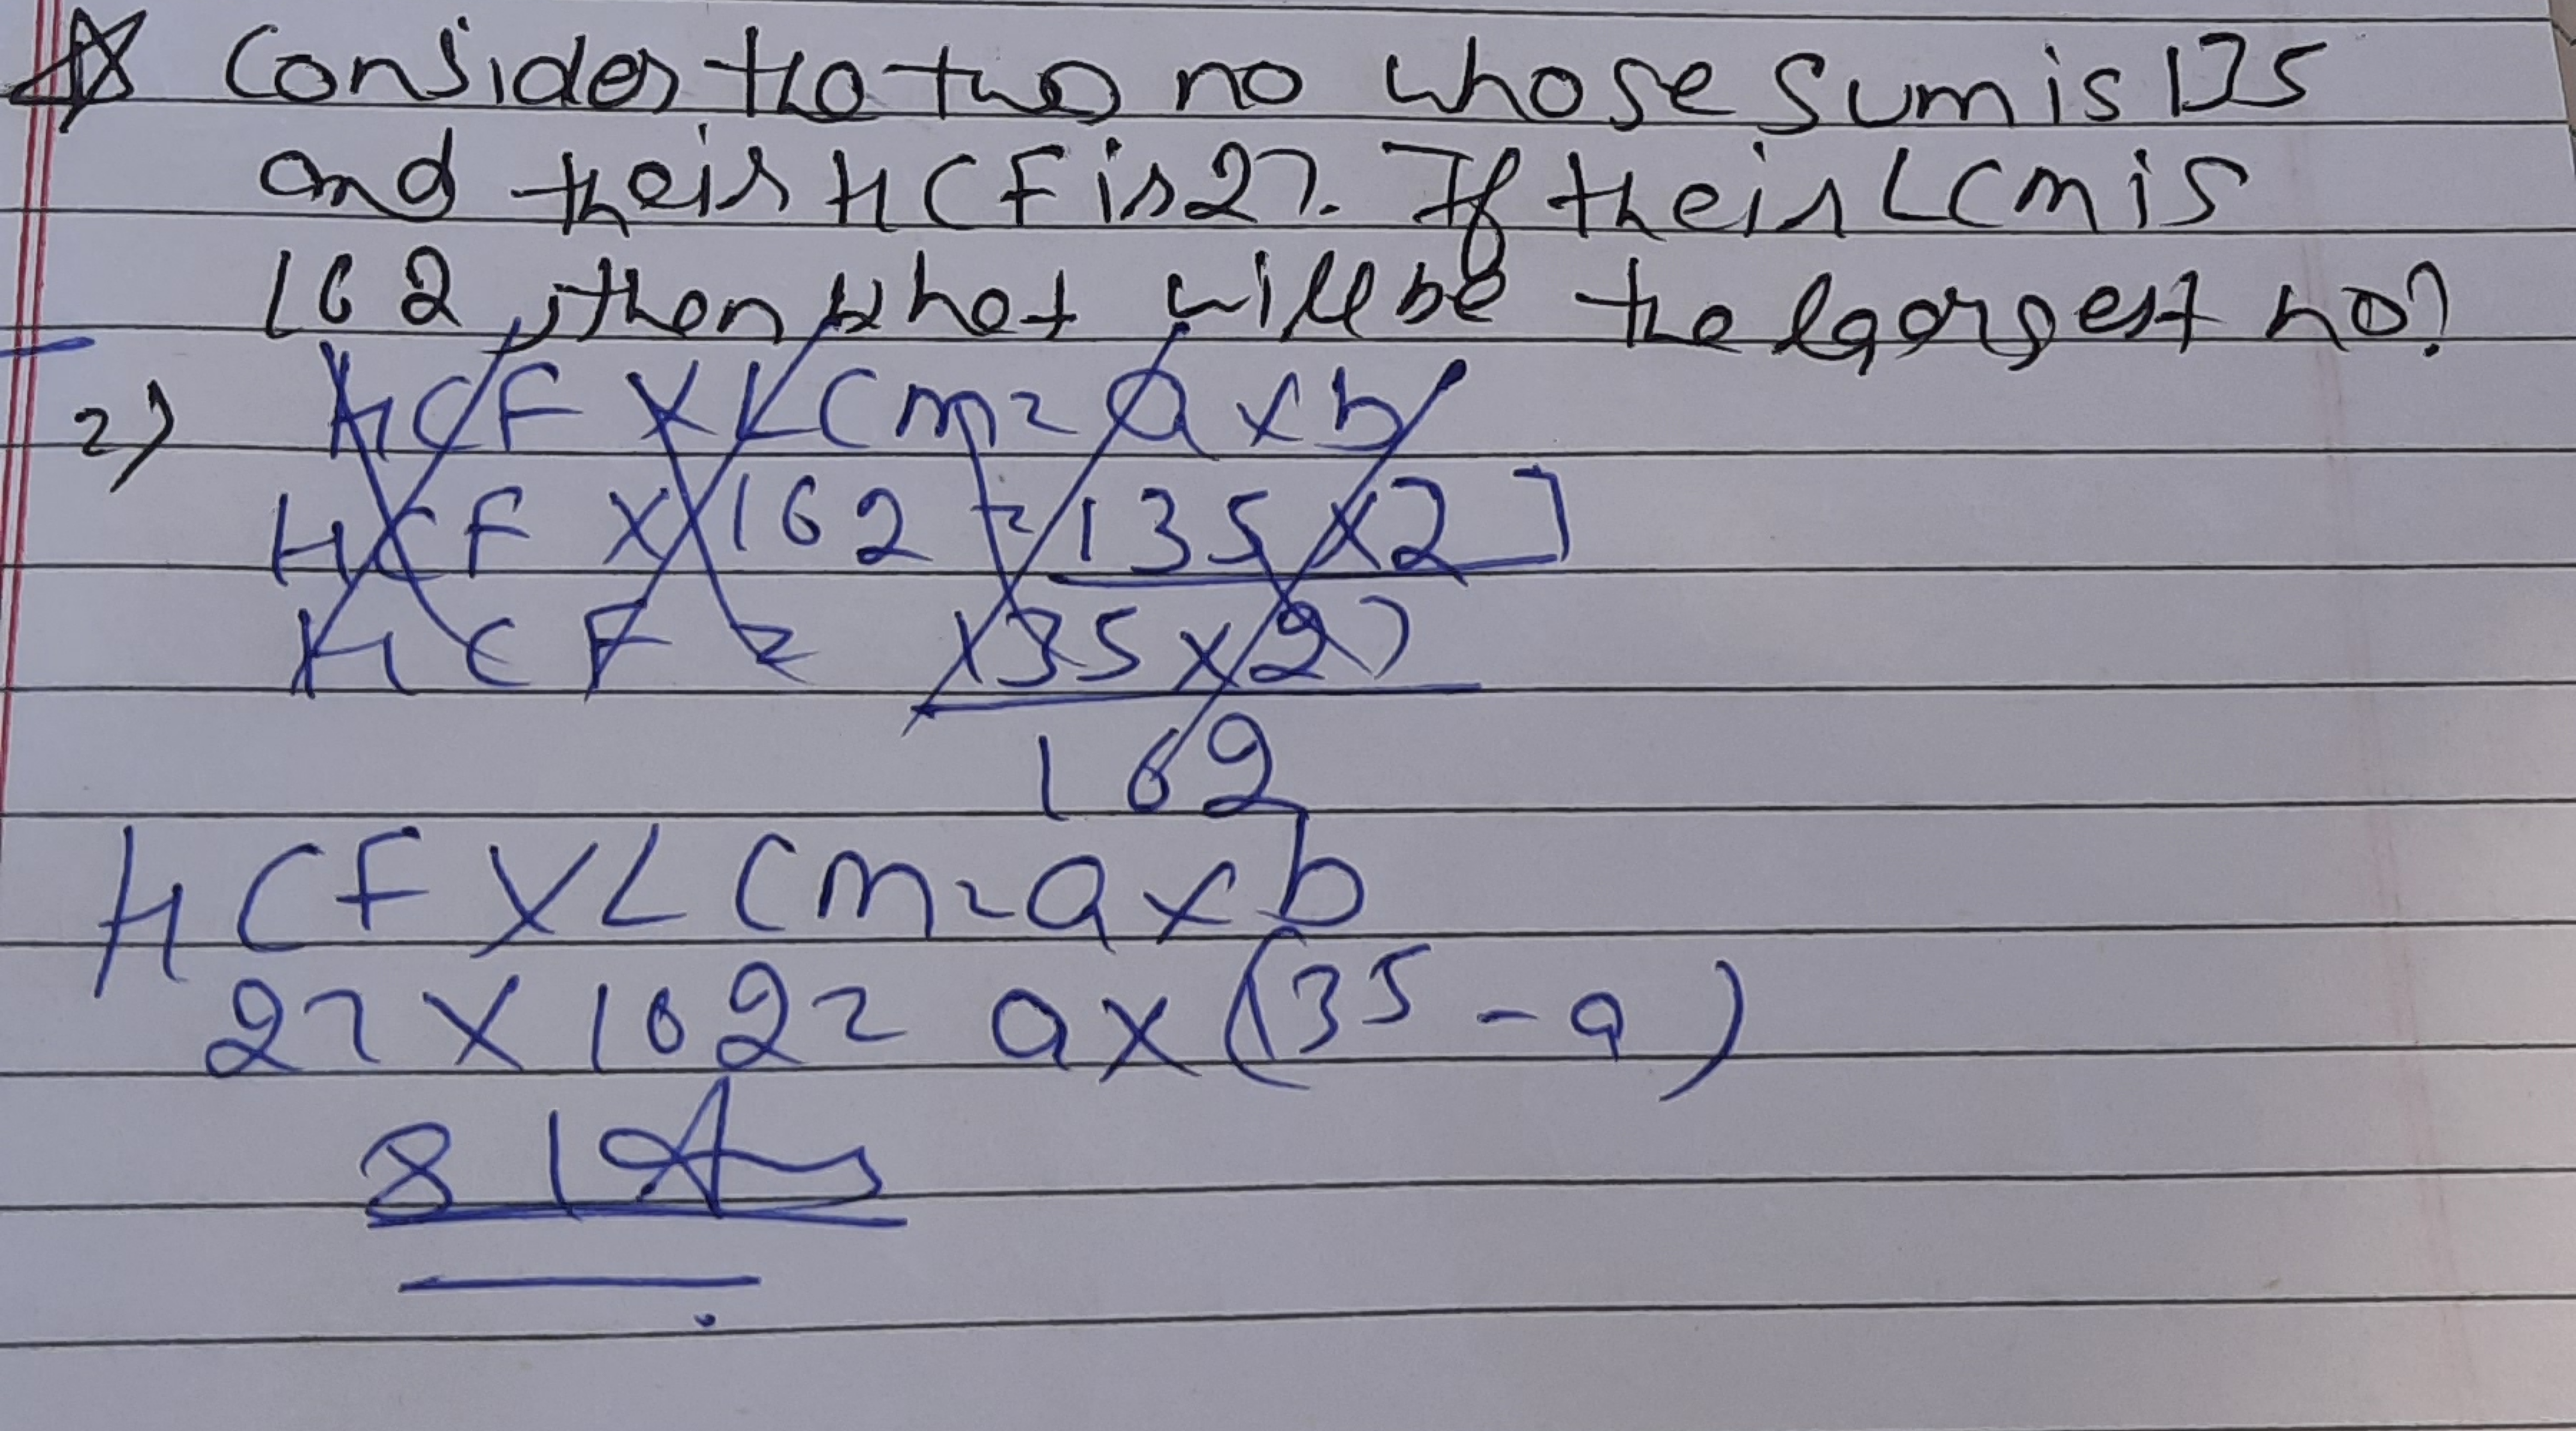 Consider the two no whose sum is 135
and their HCF is 27. If their LCM is
162, then what will be the largest no?
2) HCF X LCM = a x b
HCF X 162 = 135 X 27
HCF = 135 x 27
162
HCF X LCM = a x b
27 X 162 = a x (135 - a)
81 Ans